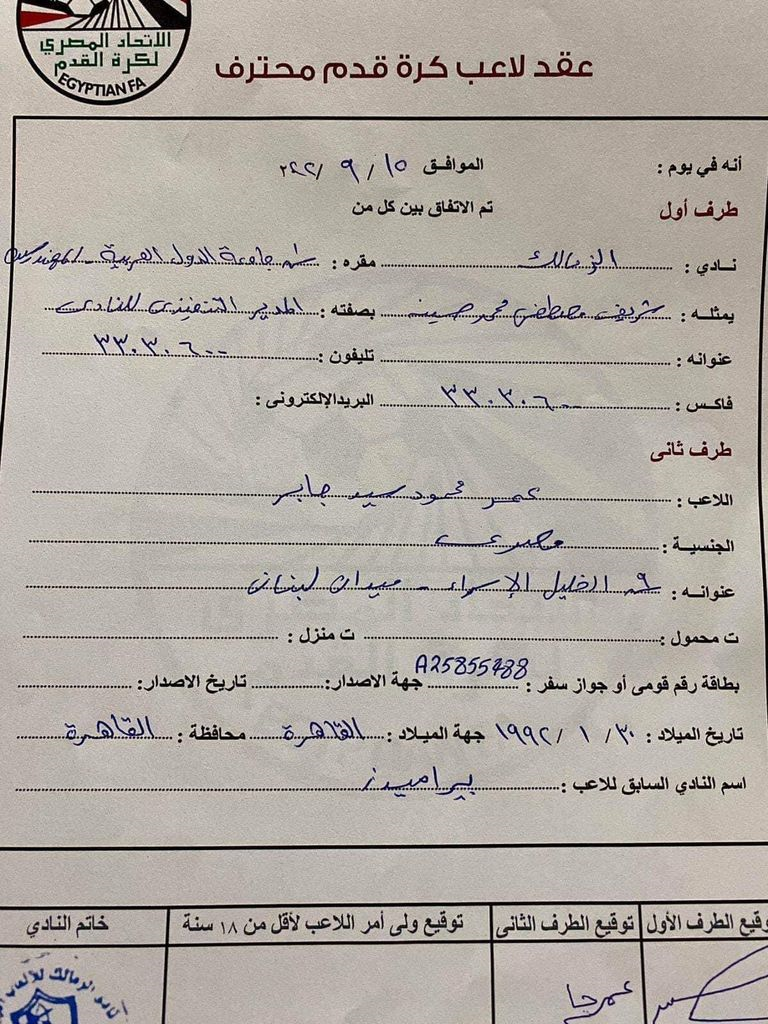 الاتحاد المصري
لكرة القدم
EGYPTIAN FA
عقد لاعب كرة قدم محترف
أنه في يوم : الموافق ١٥ / ٩ /
تم الاتفاق بين كل من
طرف أول
نادي : الزمالك مقره : ش جامعة الدول العربية - المهندسين
يمثله : شريف مصطفى محمد حسين بصفته : المدير التنفيذى للنادى
عنوانه : تليفون : ٣٣٠٣٠٦٠٠
فاكس : ٣٣٠٣٠٦٠٠ البريد الإلكترونى :
طرف ثانى
اللاعب : عمر محمود سيد جابر
الجنسية : مصرى
عنوانه : الخليل الإسراء - ميدان لبنان
ت محمول : ت منزل :
بطاقة رقم قومى أو جواز سفر : جهة الاصدار: تاريخ الاصدار:
تاريخ الميلاد : ٣٠ / ١ / ١٩٩٢ جهة الميلاد : القاهرة محافظة : القاهرة
اسم النادي السابق للاعب : بيراميدز
توقيع الطرف الأول توقيع الطرف الثانى توقيع ولى أمر اللاعب لأقل من ١٨ سنة خاتم النادي
عمر جا
نادي الزمالك للألعاب